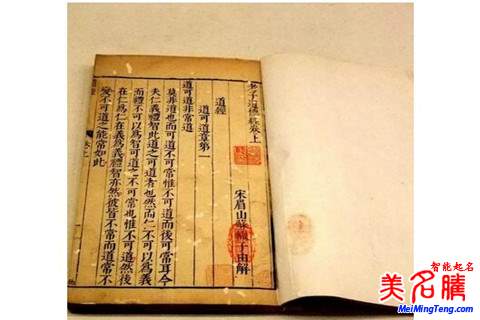 老子道德經卷上
宋眉山蘇轍子由解
道經
道可道章第一
道可道非常道
莫非道也而可道不可常惟不可道而後可常耳今
夫仁義禮智此道之可道者也然而仁不可以爲義
而禮不可以爲智可道之不可常也惟不可道然後
在仁爲仁在義爲義禮智亦然彼皆不常而道常不
變不可道之能常如此
智能起名
美名騰
MeiMingTeng.com